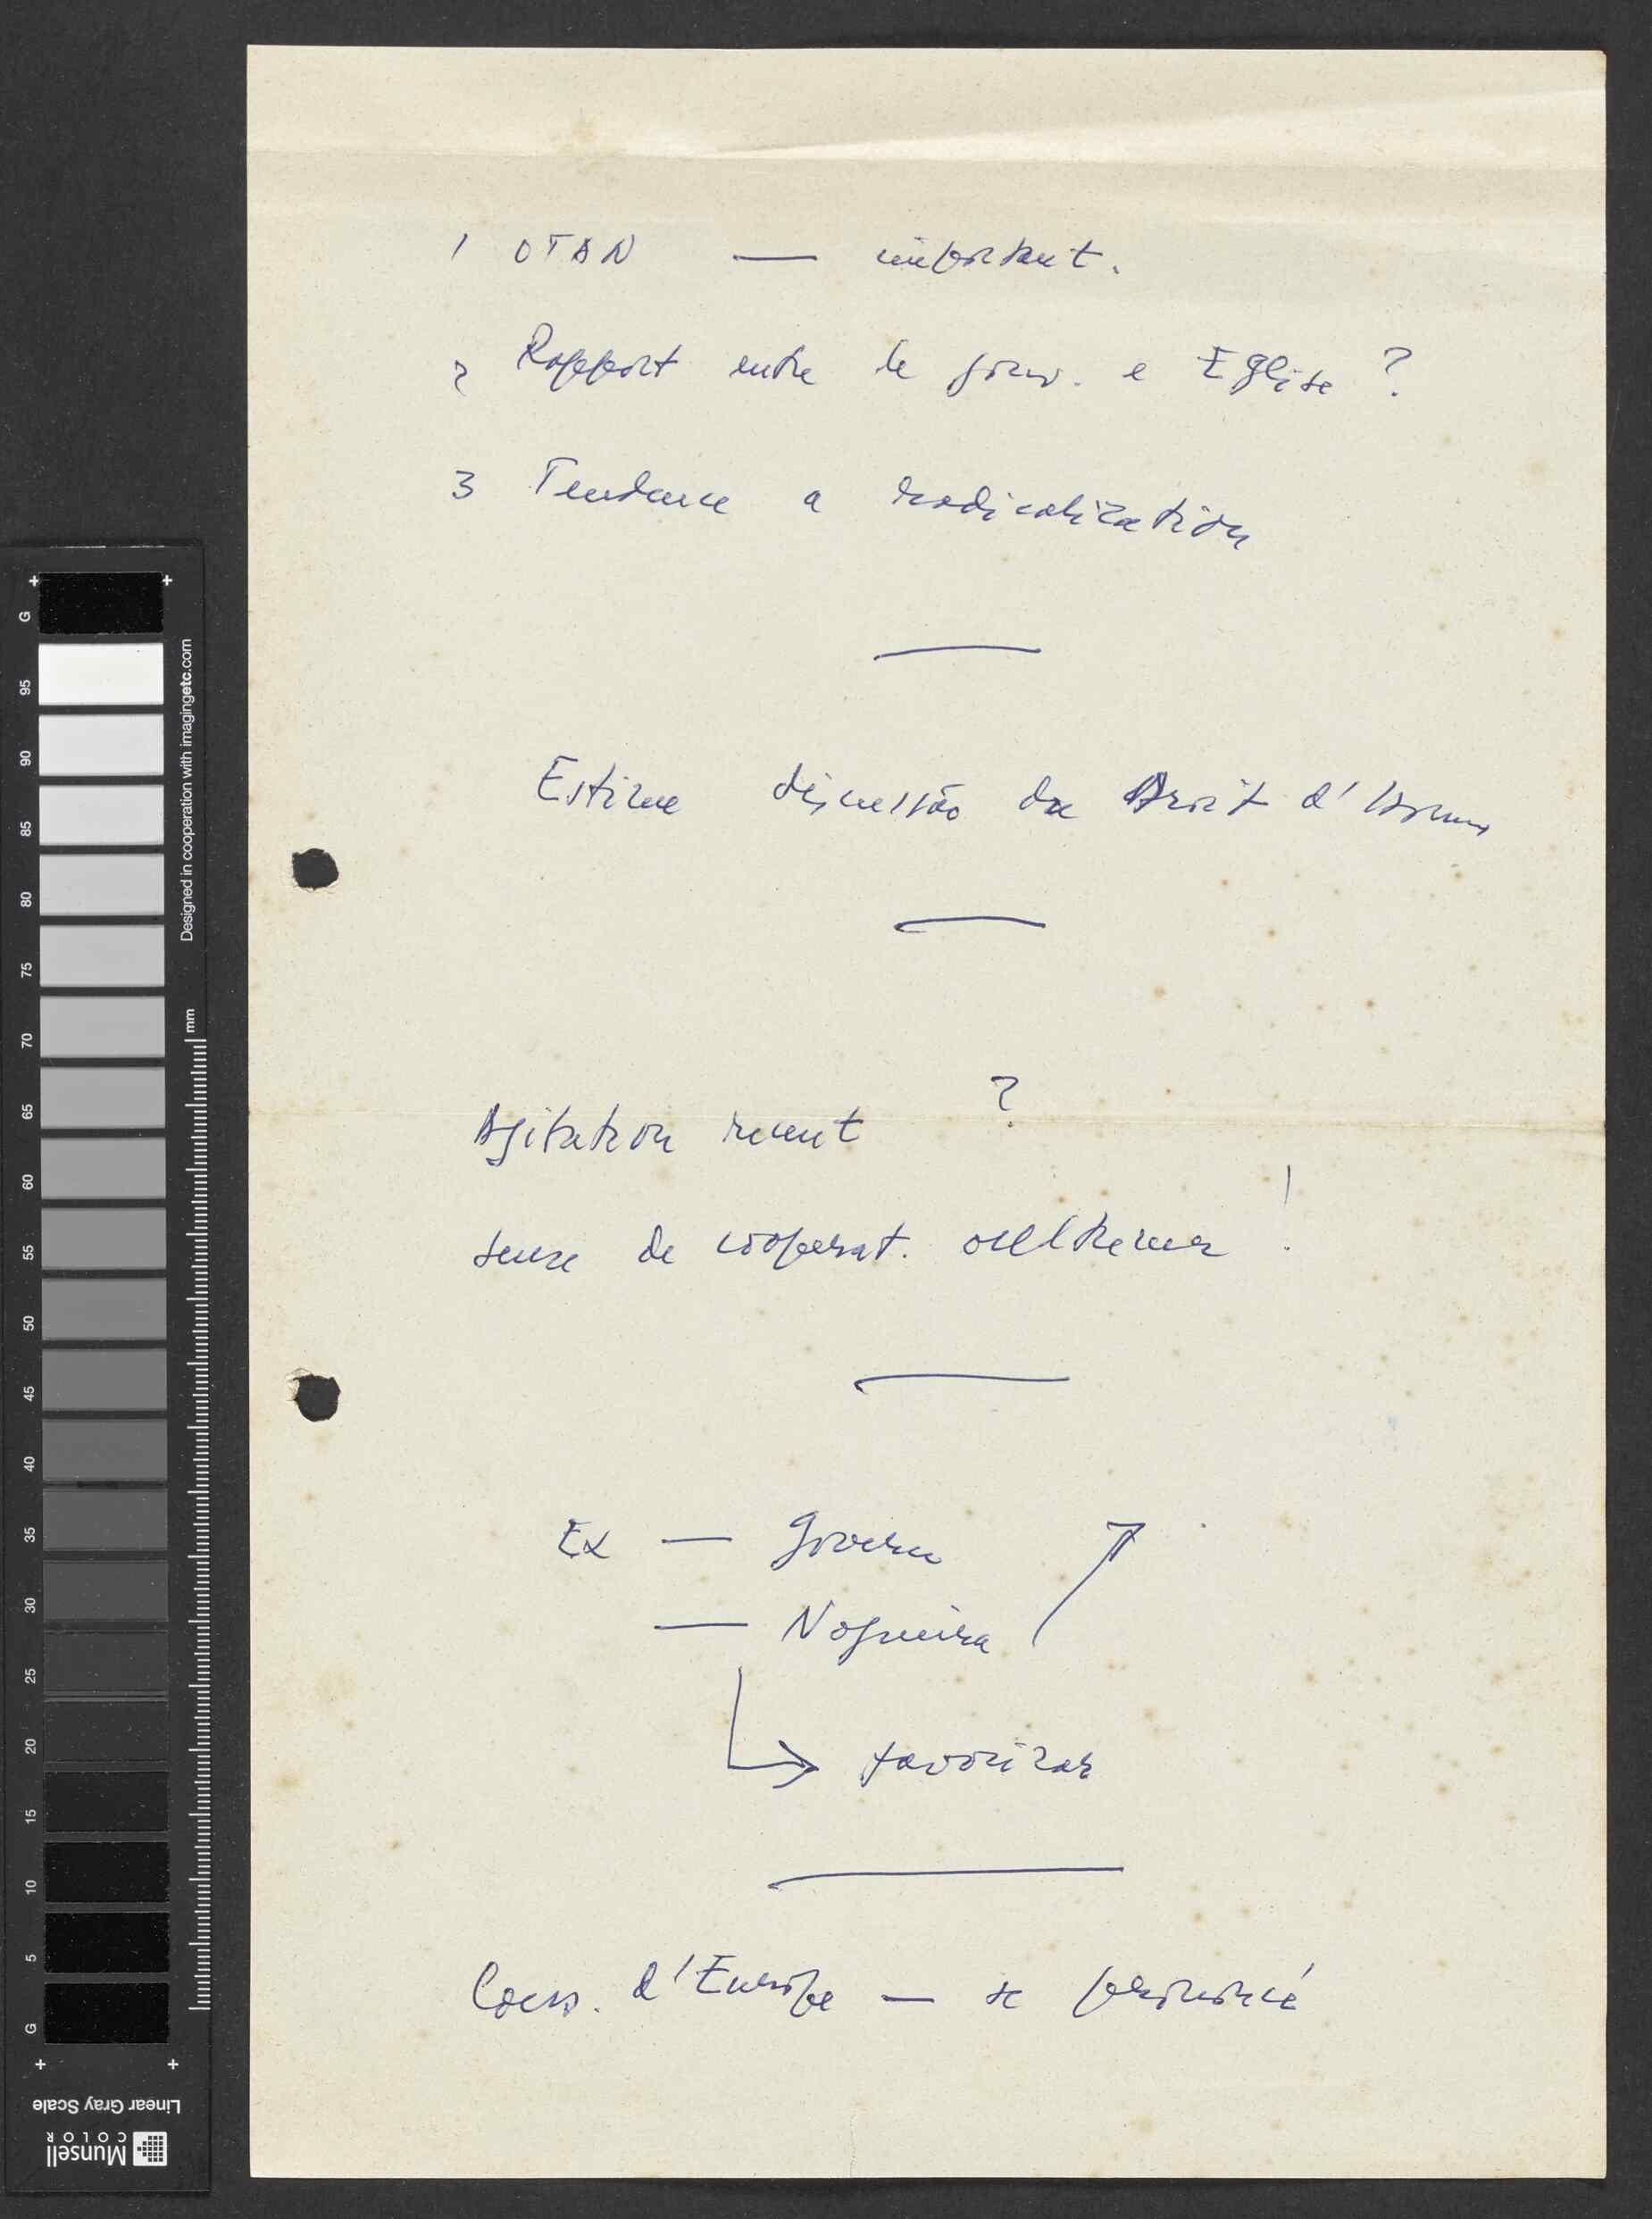 1 OTAN — important.
2 Rapport entre le gouv. e Eglise ?
3 Tendance a radicalization
Estime discussão du Droit d'Homme
Agitation recent ?
sense de cooperat. !
Ex — Govern
— Nogueira
favorizar
Cons. d'Europe — se prononcé
G 95 90 85 80 75 70 65 60 55 50 45 40 35 30 25 20 15 10 5 G
Designed in cooperation with imagingetc.com
mm
Linear Gray Scale
Munsell
COLOR